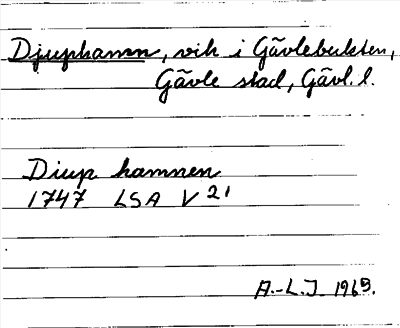 Djuphamn, vik i Gävlebukten,
Gävle stad, Gävl. l.
Diup hamnen
1747 LSA V 21
A.-L.J. 1965.